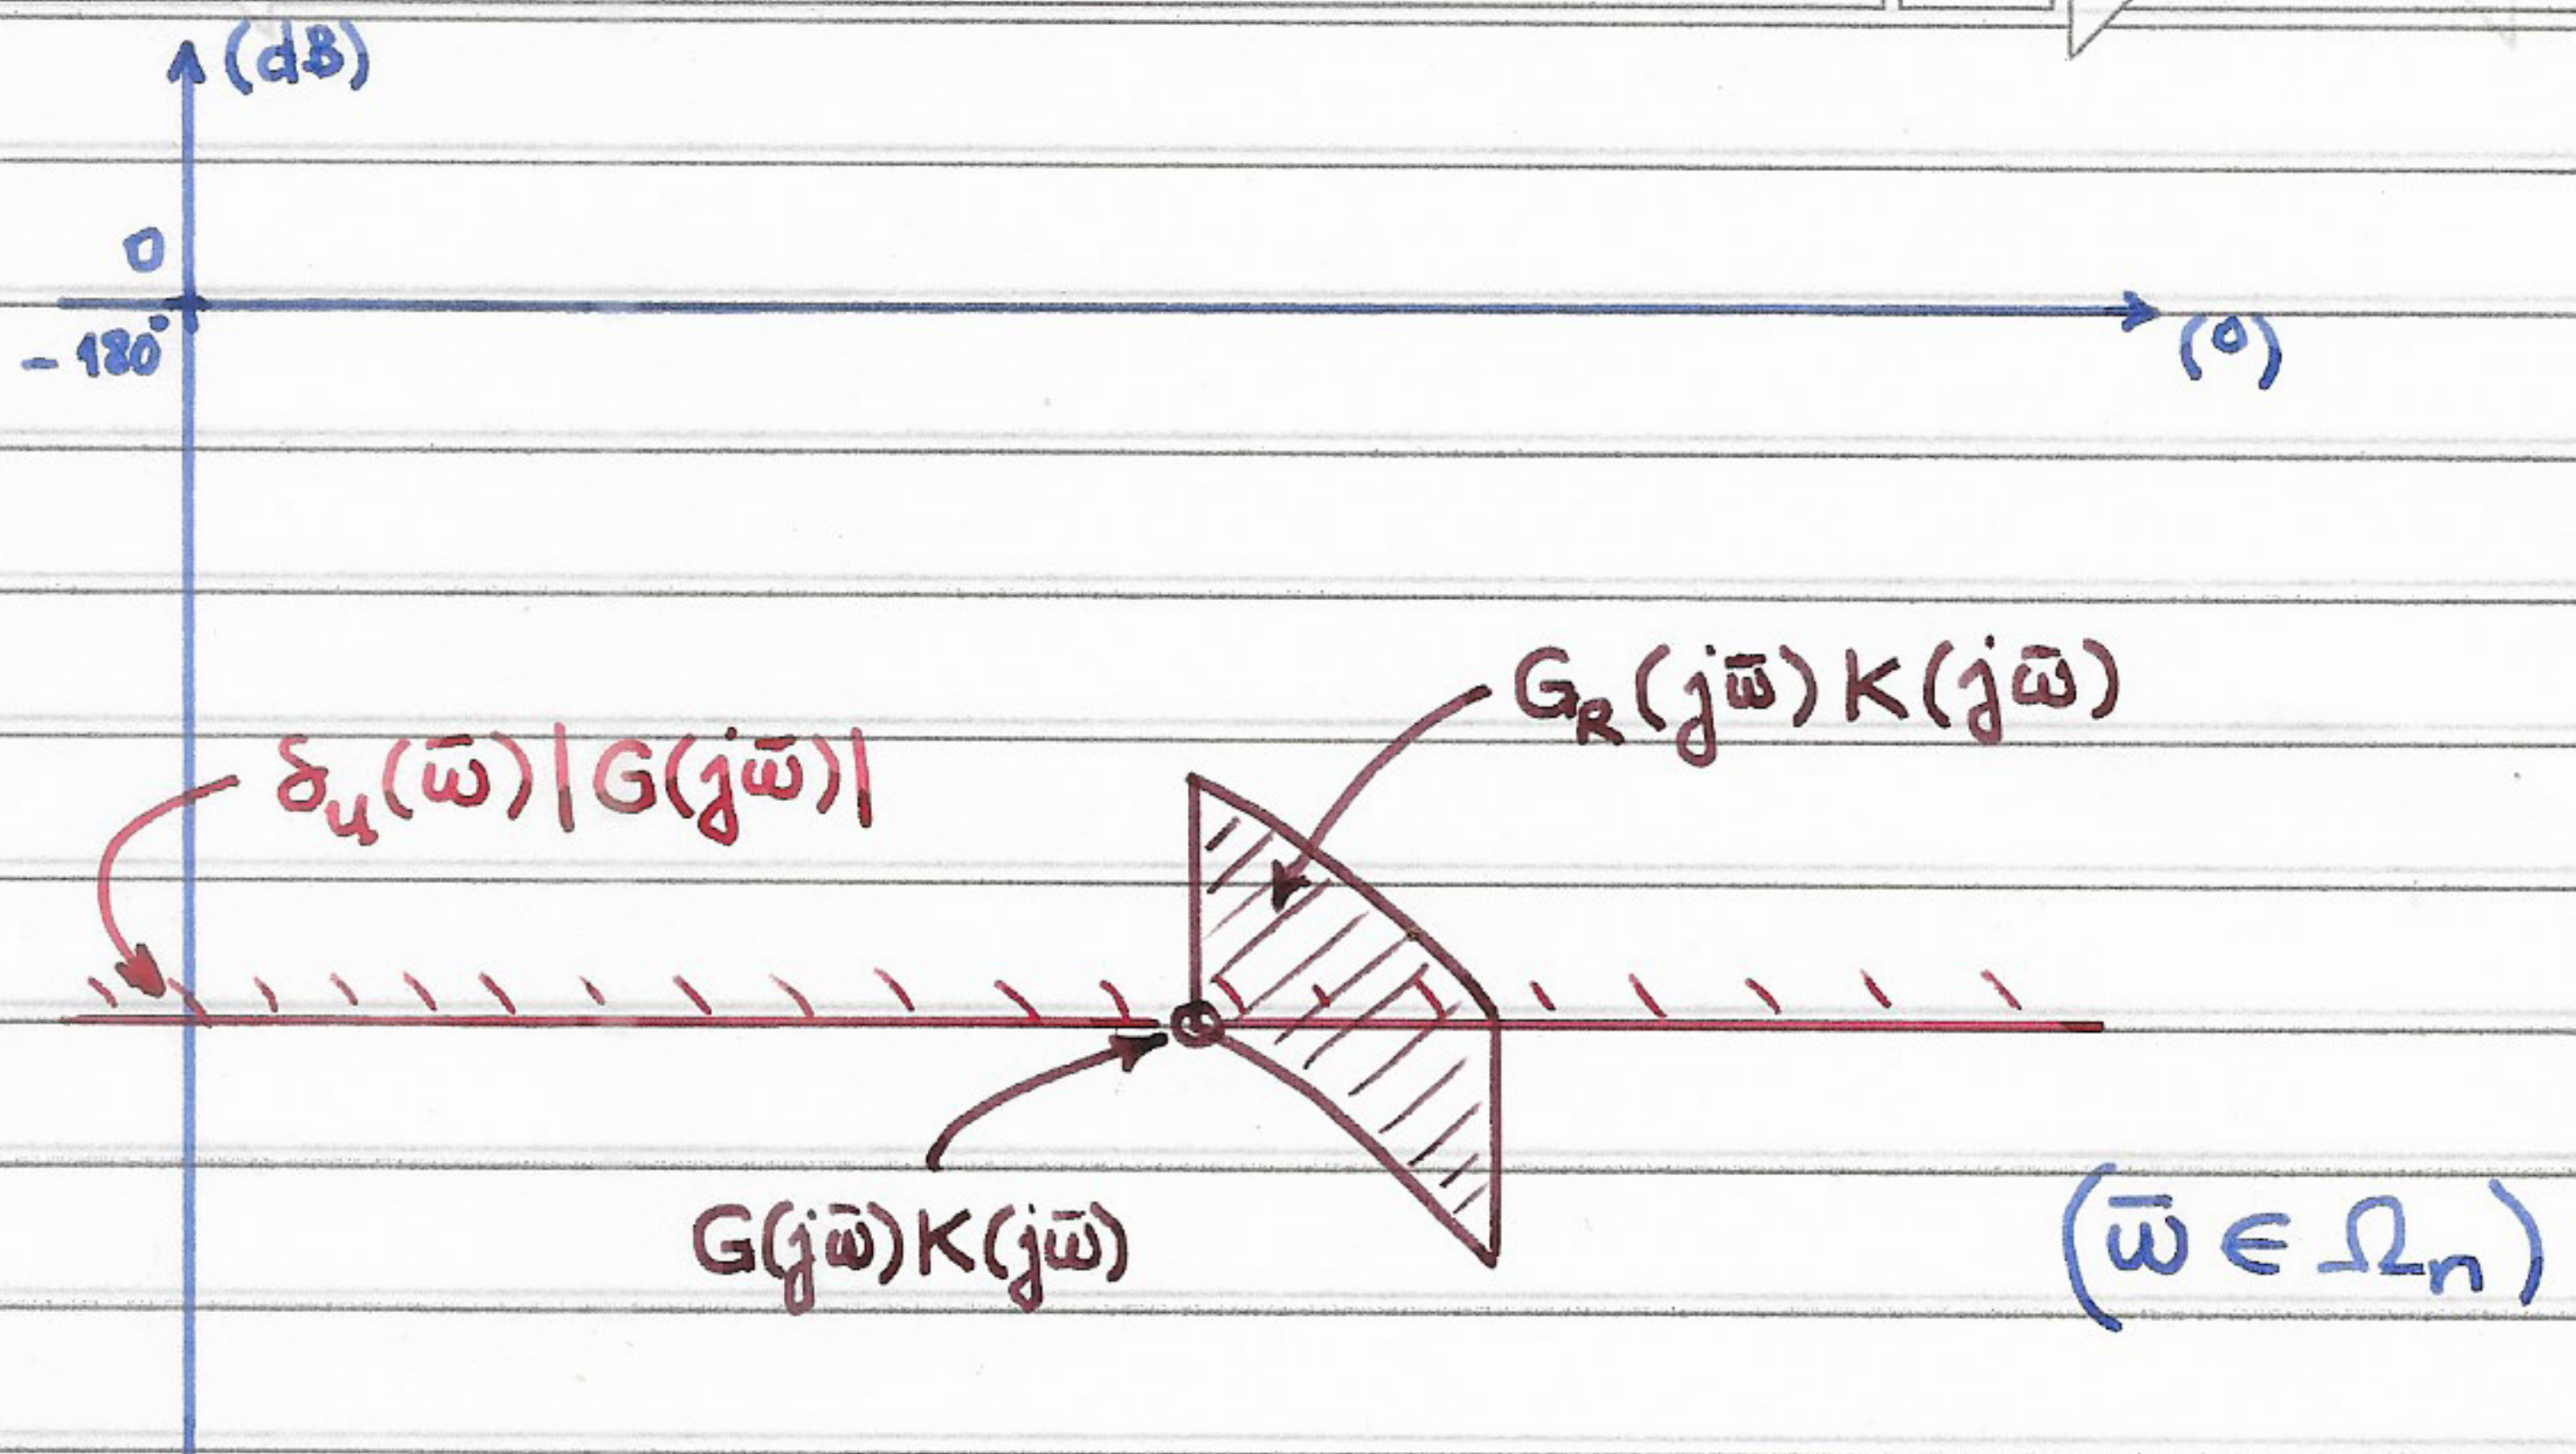 (dB)
0
-180°
(°)
G_R(jω̄)K(jω̄)
δ_u(ω̄)|G(jω̄)|
G(jω̄)K(jω̄)
(ω̄ ∈ Ω_n)